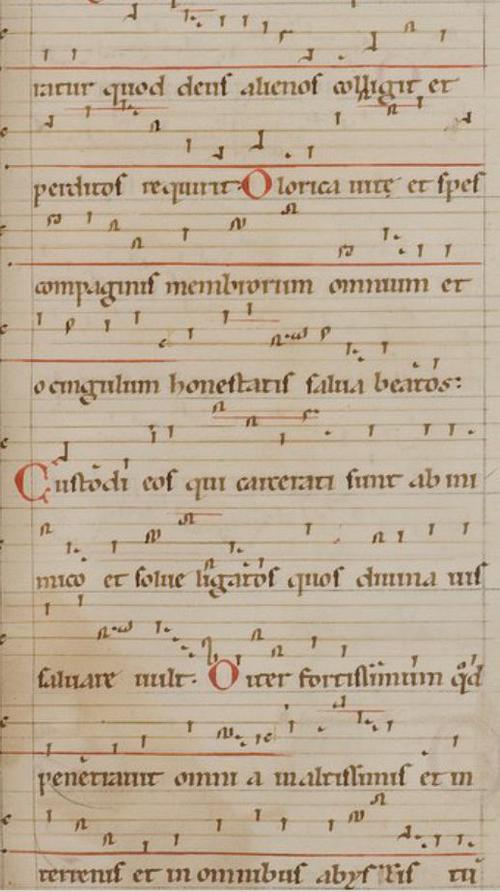 ratur quod deus alienos colligit et
perditos requirit. O lorica uitę et spes
compaginis membrorum omnium et
o cingulum honestatis salua beatos:
Custodi eos qui carcerati sunt ab ini
mico et solue ligatos quos diuina uis
saluare uult. O iter fortissimum q̊d
penetrauit omnia in altissimis et in
terrenis et in omnibus abyssis tū